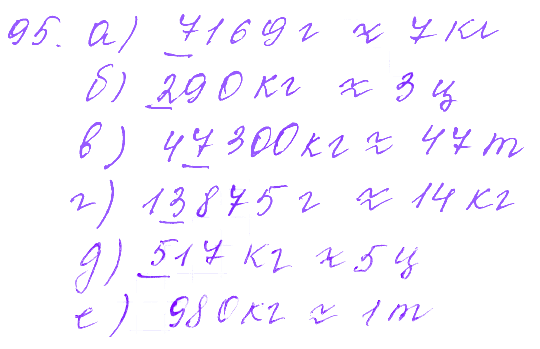 95. а) 7169 г ≈ 7 кг
б) 290 кг ≈ 3 ц
в) 47300 кг ≈ 47 т
г) 13875 г ≈ 14 кг
д) 517 кг ≈ 5 ц
е) 980 кг ≈ 1 т